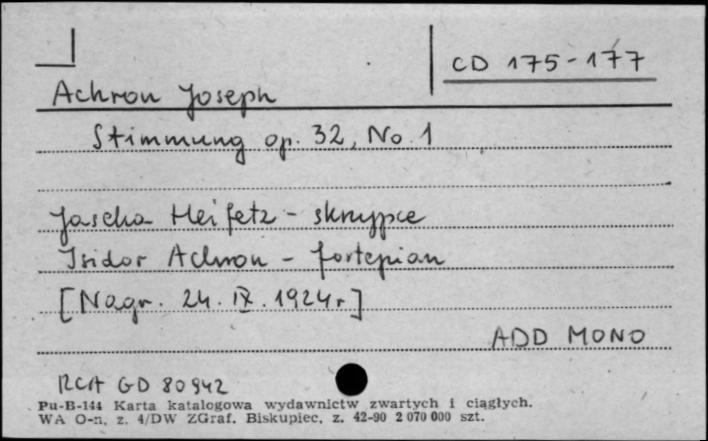 CD 175-177
Achron Joseph
Stimmung op. 32, No. 1
Jascha Heifetz - skrzypce
Isidor Achron - fortepian
[Nagr. 24. IX. 1924r]
ADD MONO
RCA GD 80942
Pu-B-144 Karta katalogowa wydawnictw zwartych i ciągłych.
WA O-n, z. 4/DW ZGraf. Biskupiec, z. 42-90 2 070 000 szt.